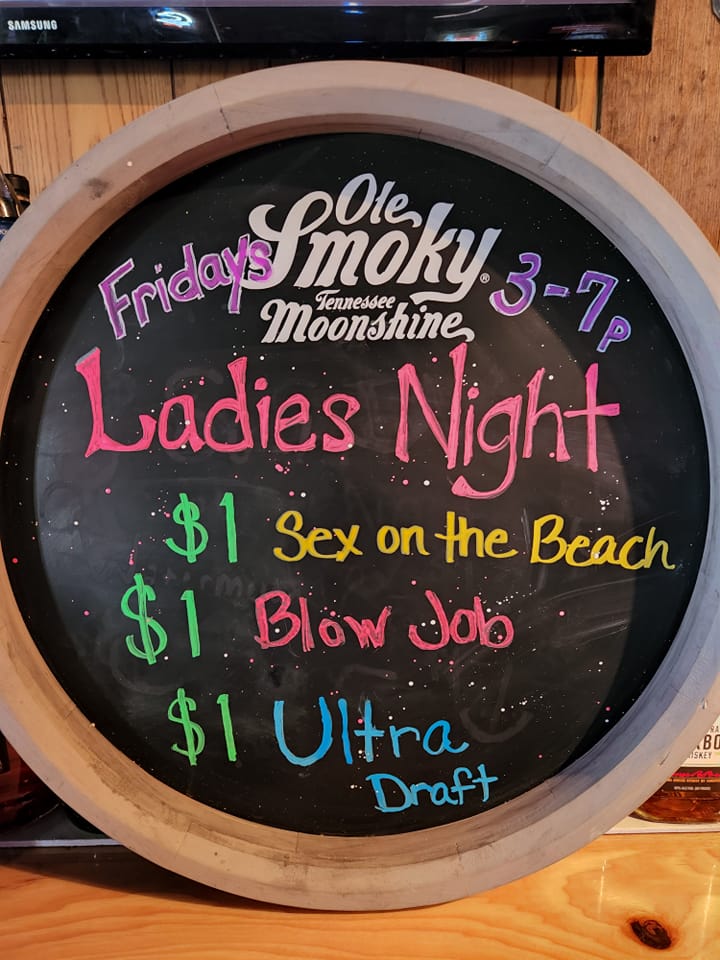 SAMSUNG
Ole
Smoky®
Tennessee
Moonshine
Fridays
3-7p
Ladies Night
$1 Sex on the Beach
$1 Blow Job
$1 Ultra
Draft